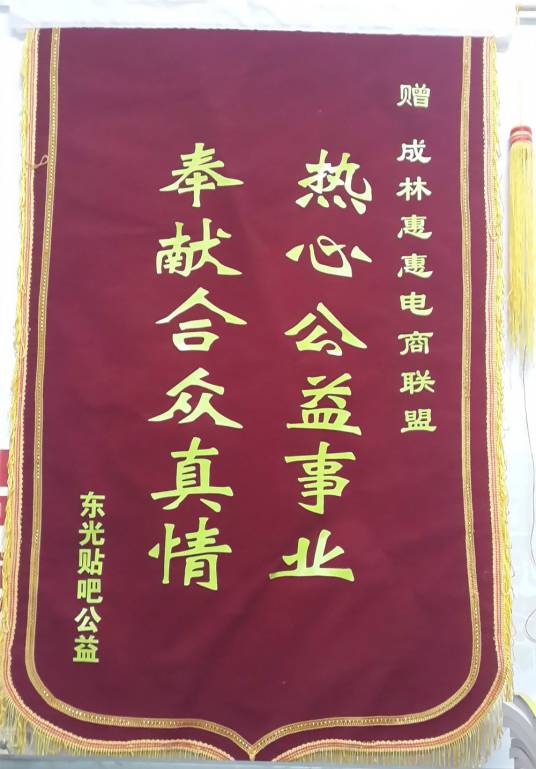 赠 成林惠惠电商联盟
热心公益事业
奉献合众真情
东光贴吧公益